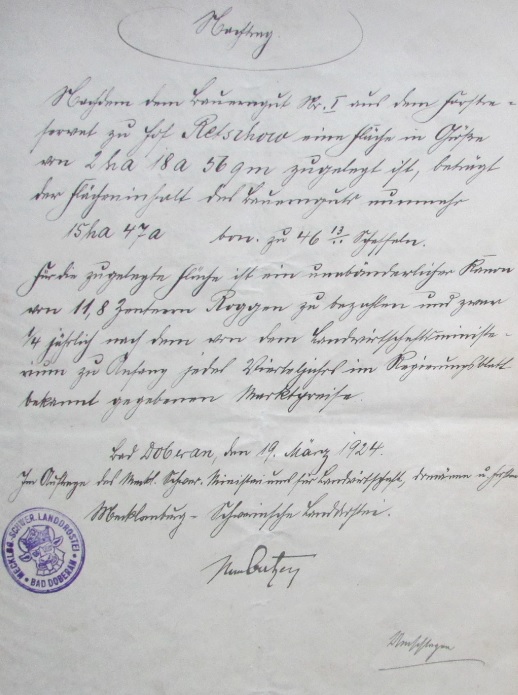 Nachtrag.
Nachdem dem Bauerngut Nr. I aus dem Forstre-
servat zu Hof Retschow eine Fläche in Größe
von 2 ha 18 a 56 qm zugelegt ist, beträgt
der Flächeninhalt des Bauernguts nunmehr
15 ha 47 a bon. zu 46 Scheffeln.
Für die zugelegte Fläche ist ein unabänderlicher Kanon
von 11,8 Zentnern Roggen zu bezahlen und zwar
1/4 jährlich nach dem von dem Landwirtschaftsministe-
rium zu Anfang jedes Vierteljahrs im Regierungsblatt
bekannt gegebenen Marktpreise.
Bad Doberan, den 19. März 1924.
Im Auftrage des Meckl. Schwer. Ministeriums für Landwirtschaft, Domänen u. Forsten
Mecklenburg-Schwerinsche Landdrostei.
MECKLBG.-SCHWER. LANDDROSTEI
BAD DOBERAN